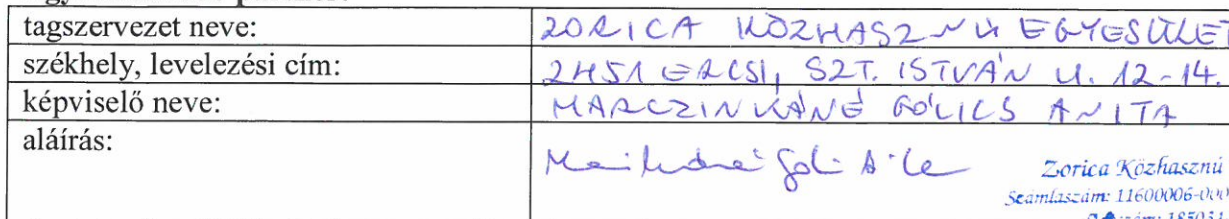 tagszervezet neve: ZORICA KÖZHASZNÚ EGYESÜLET
székhely, levelezési cím: 2451 ERCSI, SZT. ISTVÁN U. 12-14.
képviselő neve: MARCZINKÁNÉ GÓLICS ANITA
aláírás:
Zorica Közhasznú
Számlaszám: 11600006-000